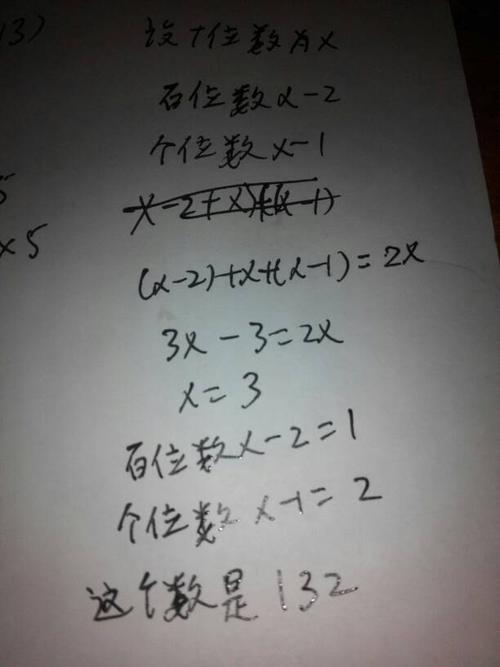 13)
设十位数为x
百位数x-2
个位数x-1
x-2+x)+(x-1)
5
x5
(x-2)+x+(x-1)=2x
3x-3=2x
x=3
百位数x-2=1
个位数x-1=2
这个数是132